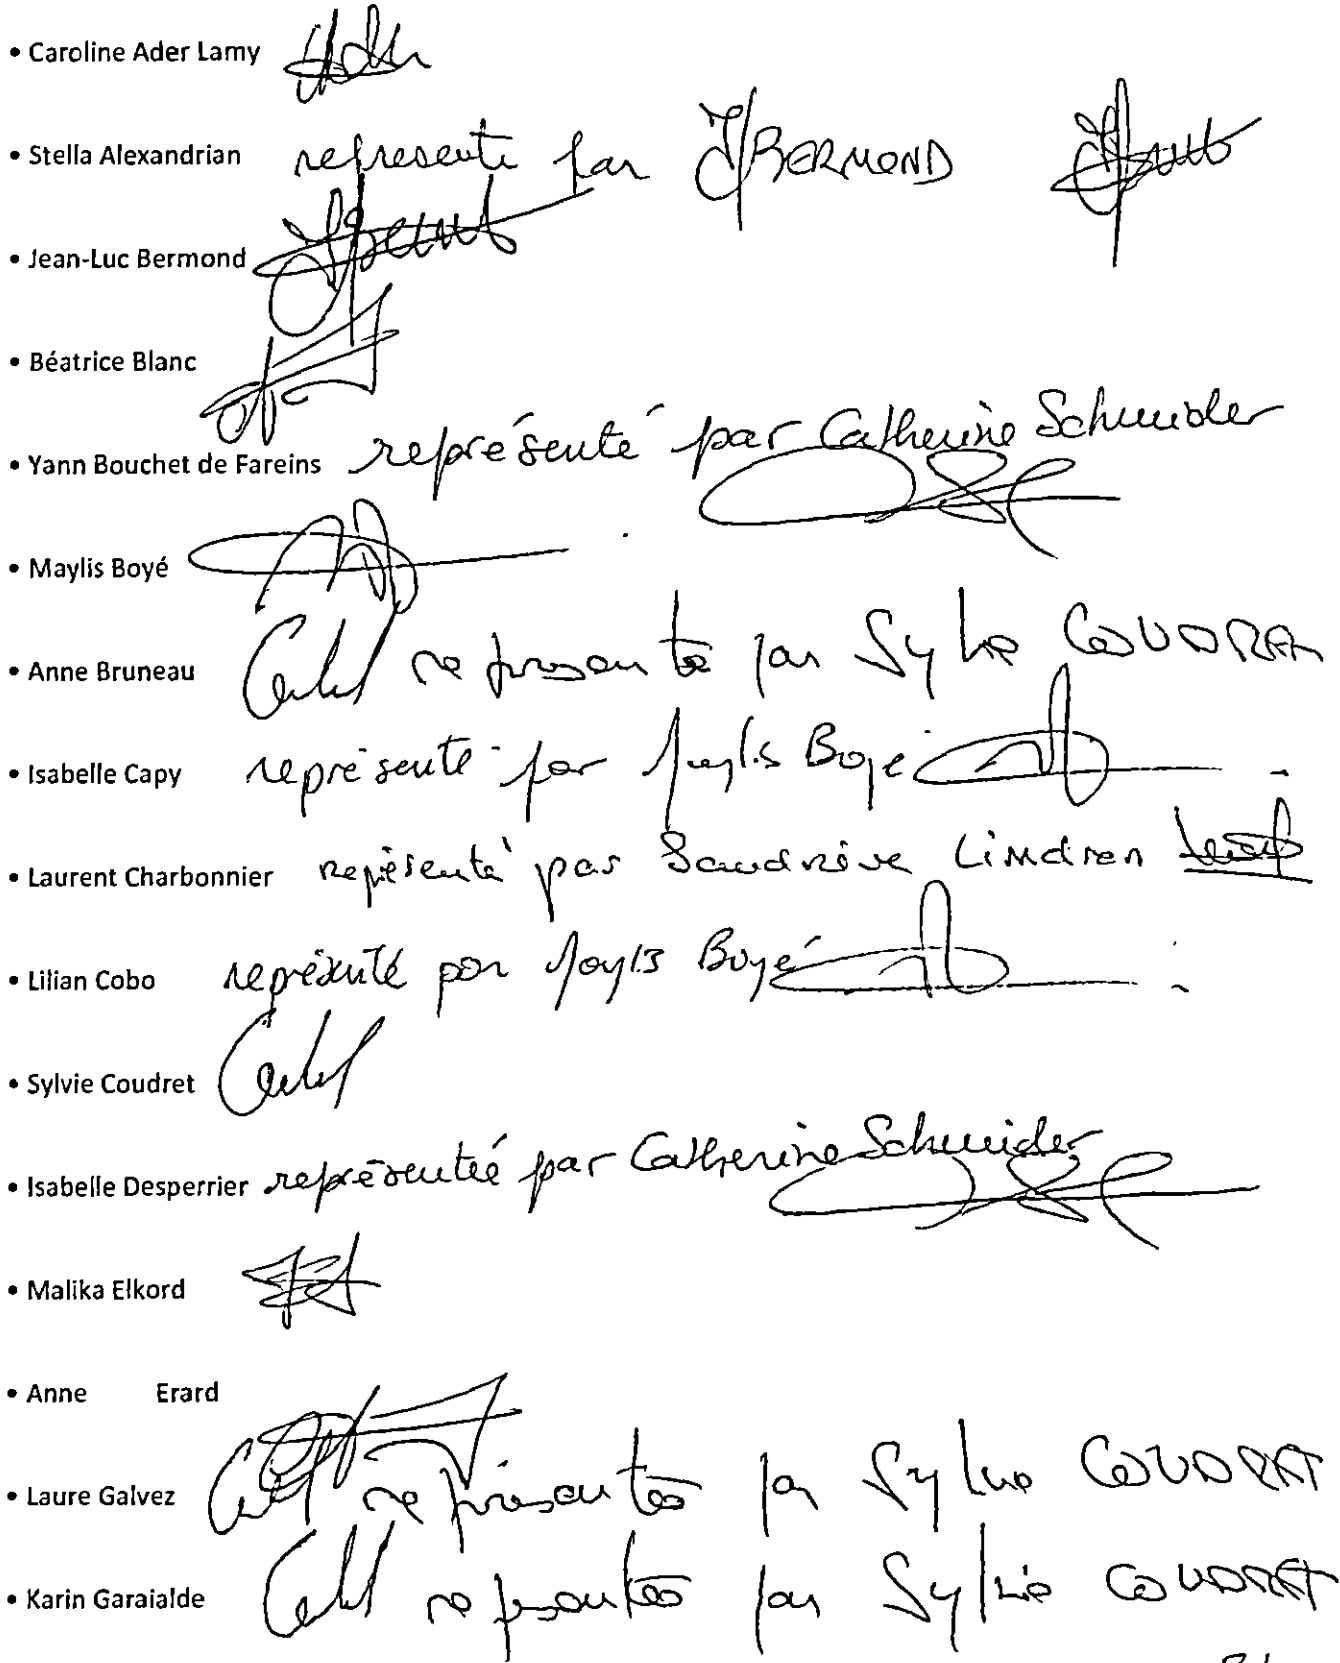 • Caroline Ader Lamy
• Stella Alexandrian represente par JL BERMOND
• Jean-Luc Bermond
• Béatrice Blanc
• Yann Bouchet de Fareins représenté par Catherine Schneider
• Maylis Boyé
• Anne Bruneau représentée par Sylvie COUDRET
• Isabelle Capy représenté par Maylis Boyé
• Laurent Charbonnier représenté par Sandrine Lindren
• Lilian Cobo représenté par Maylis Boyé
• Sylvie Coudret
• Isabelle Desperrier représentée par Catherine Schneider
• Malika Elkord
• Anne Erard
• Laure Galvez représentée par Sylvie COUDRET
• Karin Garaialde représentée par Sylvie COUDRET